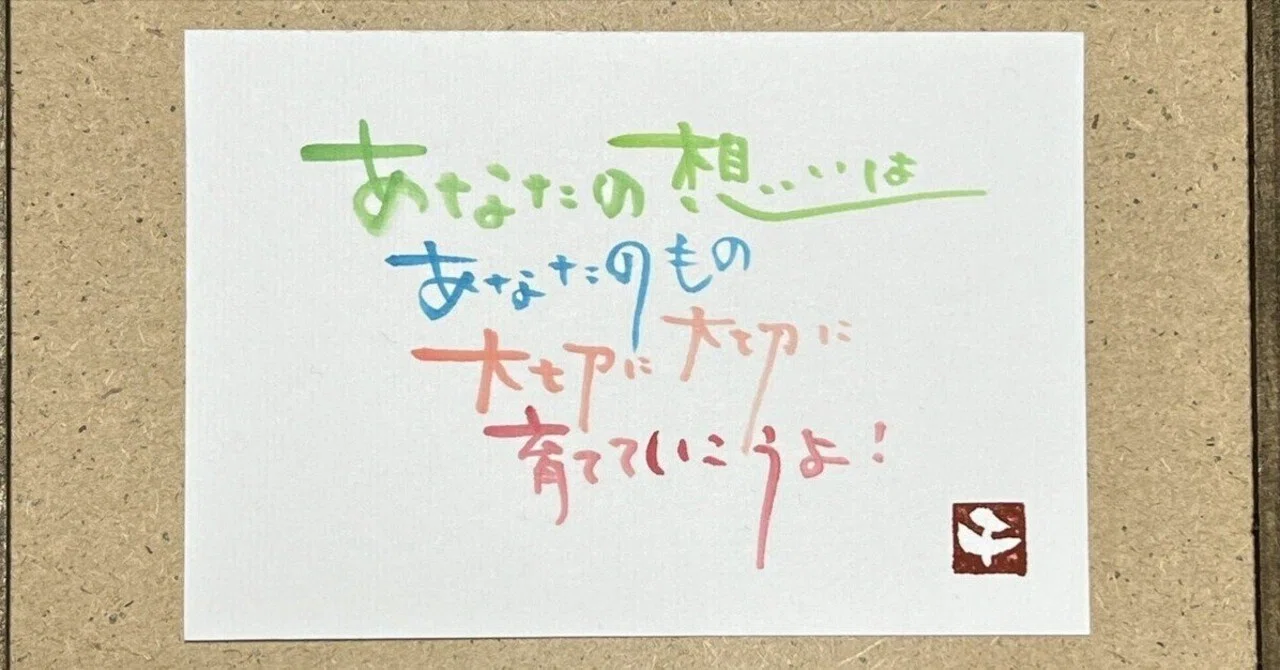 あなたの想いは
あなたのもの
大切に大切に
育てていこうよ!